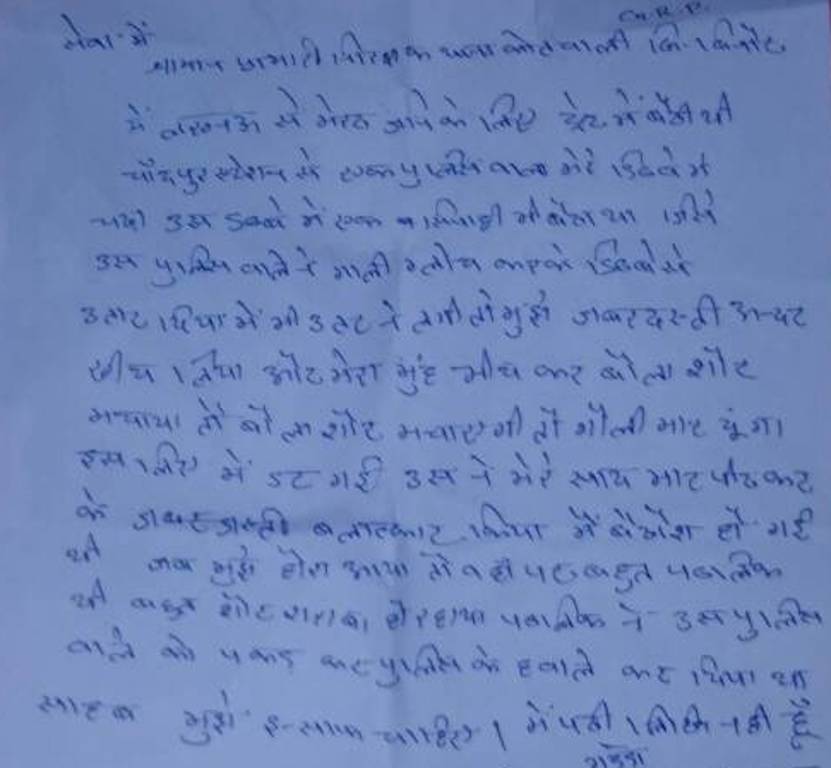 G.R.P.
सेवा में
श्रीमान प्रभारी निरीक्षक थाना कोतवाली जि. बिजनौर
में लखनऊ से मेरठ जाने के लिए ट्रेन में बैठी थी
चाँदपुर स्टेशन से एक पुलिस वाला मेरे डिब्बे में
चढा उस डब्बे में एक सिपाही भी बैठा था जिसे
उस पुलिस वाले ने गाली गलोच करके डिब्बे से
उतार दिया में भी उतरने लगी तो मुझे जबरदस्ती अन्दर
खीच लिया और मेरा मुंह भीच कर बोला शोर
मचाया तो बोला शोर मचाएगी तो गोली मार दूंगा
इस लिए में डर गई उस ने मेरे साथ मार पीट कर
के जबरजस्ती बलात्कार किया में बेहोश हो गई
थी जब मुझे होश आया तो वहां पर बहुत पबलिक
थी बहुत शोर शराबा हो रहा था पबलिक ने उस पुलिस
वाले को पकड कर पुलिस के हवाले कर दिया था
साहब मुझे इन्साफ चाहिए । में पढी लिखी नही हूँ